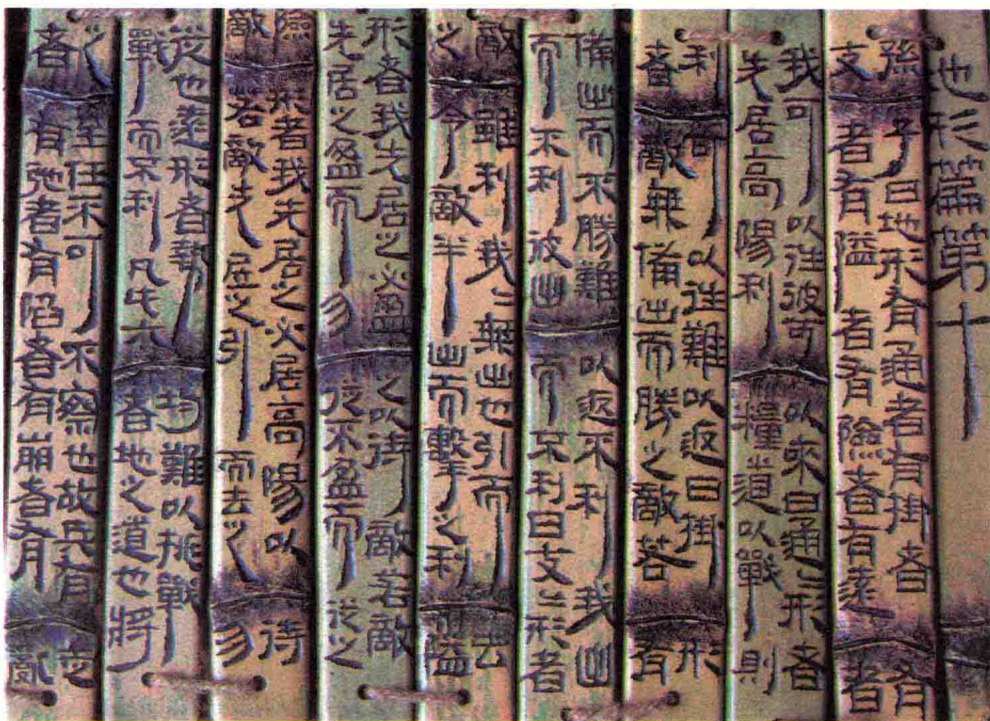 地形篇第十
孫子曰地形有通者有掛者有
支者有隘者有險者有遠者
我可以往彼可以來曰通〻形者
先居高陽利糧道以戰則
利可以往難以返曰掛形
者敵無備出而勝之敵若有
備出而不勝難以返不利我出
而不利彼出而不利曰支〻形者
敵雖利我〻無出也引而去
之令敵半出而擊之利隘
形者我先居之必盈之以待敵若敵
先居之盈而勿從不盈而從之
險形者我先居之必居高陽以待
敵若敵先居之引而去之勿
從也遠形者勢均難以挑戰
戰而不利凡此六者地之道也將
之至任不可不察也故兵有走
者有弛者有陷者有崩者有亂